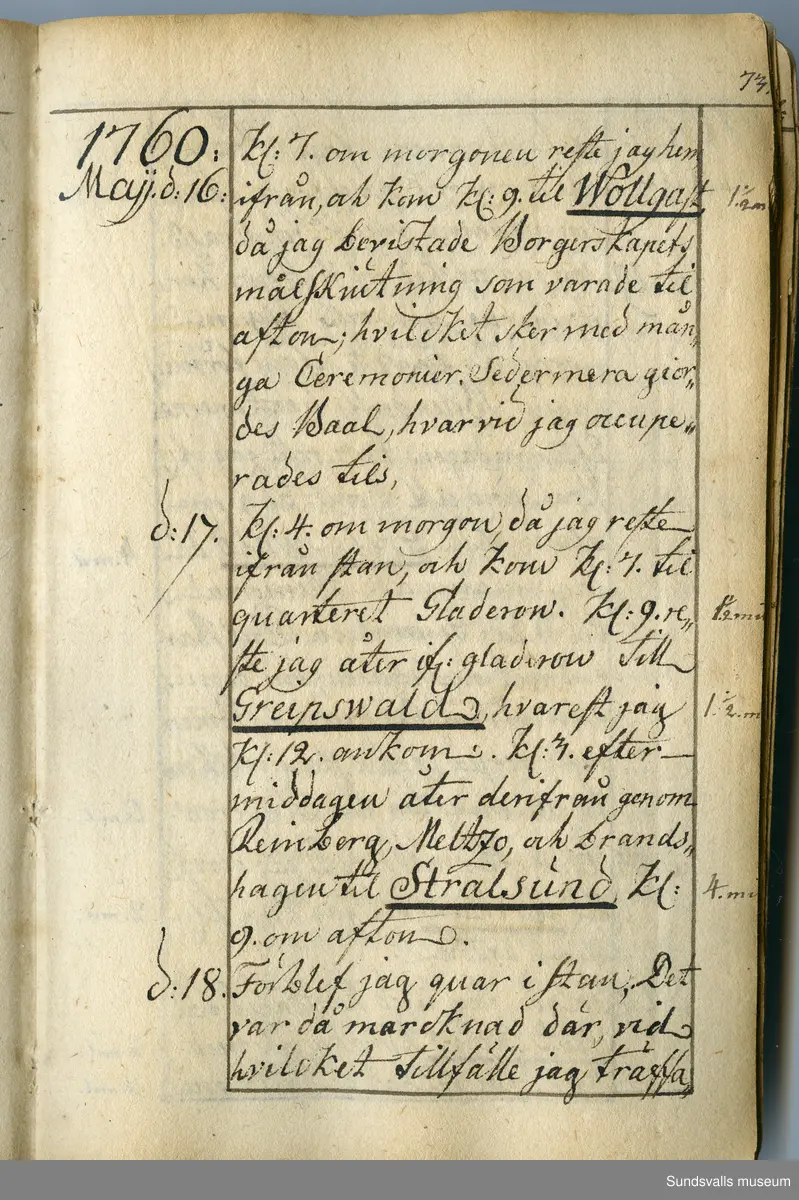 73.
1760: Kl: 7. om morgonen reste jag hem
Maij. d: 16: ifrån, och kom kl: 9. til Wollgast, 1½ m
då jag bevistade Borgerskapets
målskiutning som varade til
afton; hvilcket sker med mån„
ga Ceremonier. Sedermera gior„
des Baal, hvarvid jag occupe„
rades tils,
d: 17. Kl: 4. om morgon, då jag reste
ifrån stan, och kom kl: 7. til
quarteret Gladerow. Kl: 9. re„ 1½ mi
ste jag åter if: gladerow till
Greipswald, hvarest jag 1½. m
kl: 12. ankom. Kl: 3. efter
middagen åter derifrån genom
Reinberg, Meltzo, och brands„
hagen til Stralsund, kl: 4. mi
9. om afton.
d: 18. Förblef jag quar i stan, Det
var då marcknad där, vid
hvilcket tillfälle jag träffa„
Sundsvalls museum